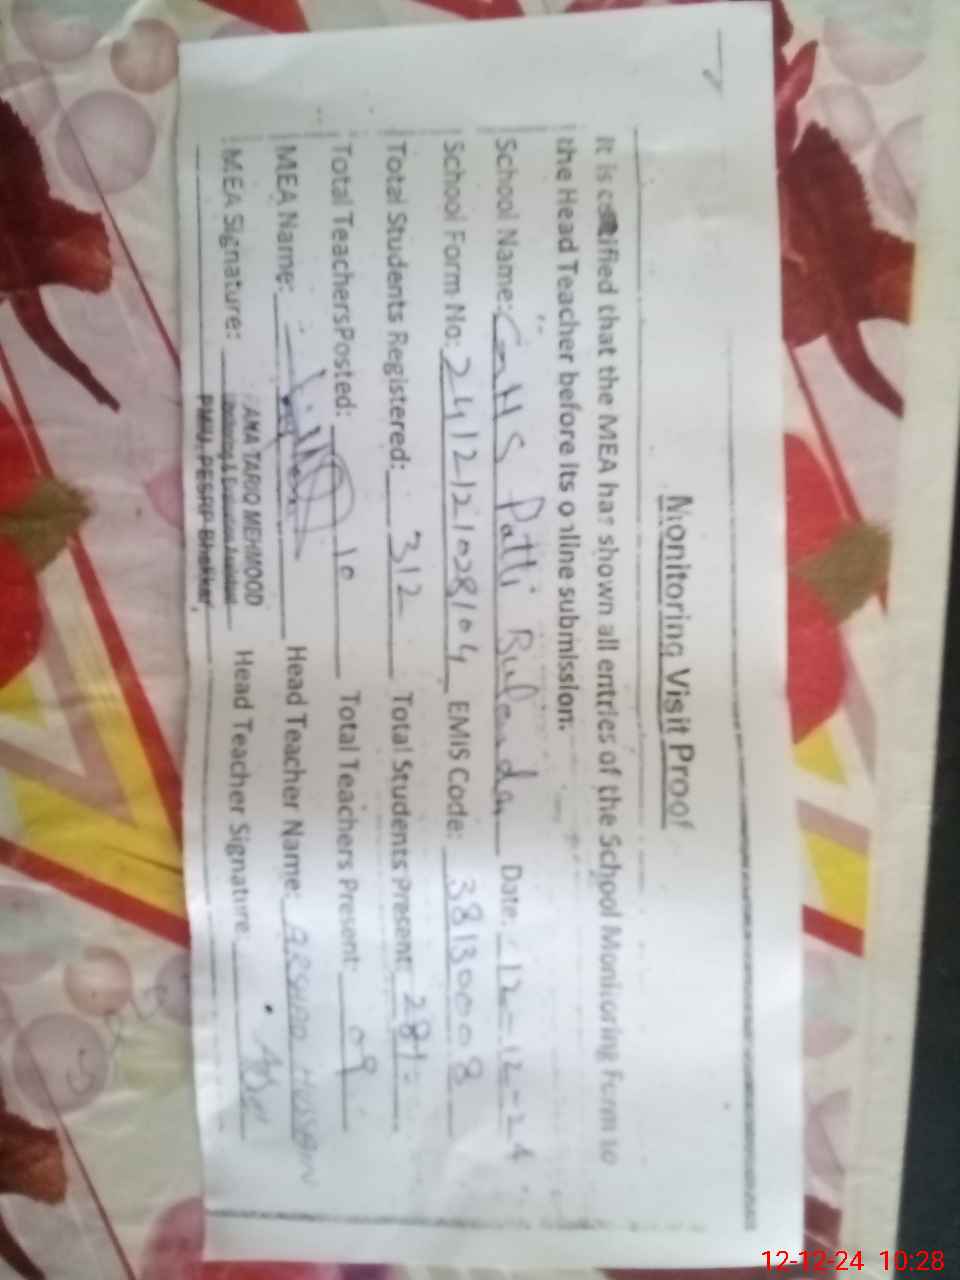 Monitoring Visit Proof
It is certified that the MEA has shown all entries of the School Monitoring Form to
the Head Teacher before its online submission.
School Name: GHS Patti Bulanda Date: 12-12-24
School Form No: 241212028104 EMIS Code: 38130008
Total Students Registered: 312 Total Students Present: 281
Total Teachers Posted: 10 Total Teachers Present: 09
MEA Name: Head Teacher Name: ARSHAD HUSSAIN
MEA Signature: Head Teacher Signature:
TARIQ MEHMOOD
PMIU, PESRP Bhakkar
12-12-24 10:28